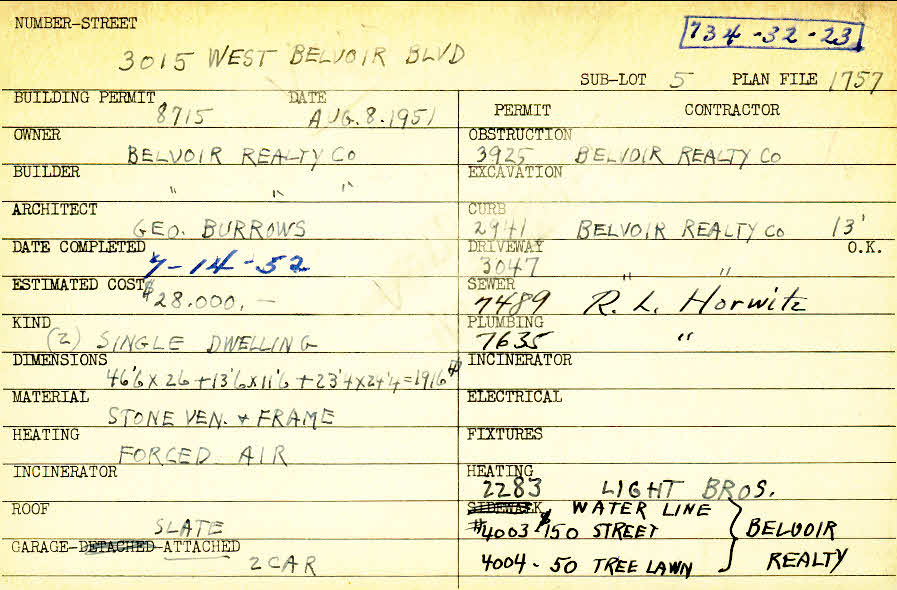 NUMBER-STREET
734-32-23
3015 WEST BELVOIR BLVD
SUB-LOT 5 PLAN FILE 1757
BUILDING PERMIT DATE
8715 AUG. 8. 1951
OWNER
BELVOIR REALTY CO
BUILDER
" " "
ARCHITECT
GEO. BURROWS
DATE COMPLETED
7-14-52
ESTIMATED COST $28.000, —
KIND
(2) SINGLE DWELLING
DIMENSIONS
46'6 X 26 + 13'6 X 11'6 + 23'4 X 24'4 = 1916 #
MATERIAL
STONE VEN. & FRAME
HEATING
FORCED AIR
INCINERATOR
ROOF
SLATE
GARAGE-DETACHED-ATTACHED
2 CAR
PERMIT CONTRACTOR
OBSTRUCTION
3925 BELVOIR REALTY CO
EXCAVATION
CURB
2941 BELVOIR REALTY CO 13'
DRIVEWAY O.K.
3047 " "
SEWER
7489 R. L. Horwitz
PLUMBING
7635 "
INCINERATOR
ELECTRICAL
FIXTURES
HEATING
2283 LIGHT BROS.
SIDEWALK WATER LINE
#4003 $150 STREET BELVOIR
4004 - 50 TREE LAWN REALTY